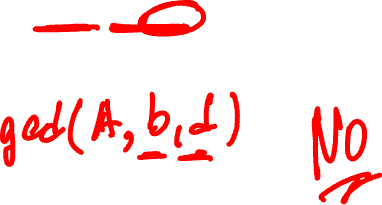 gcd(A, b, d) NO